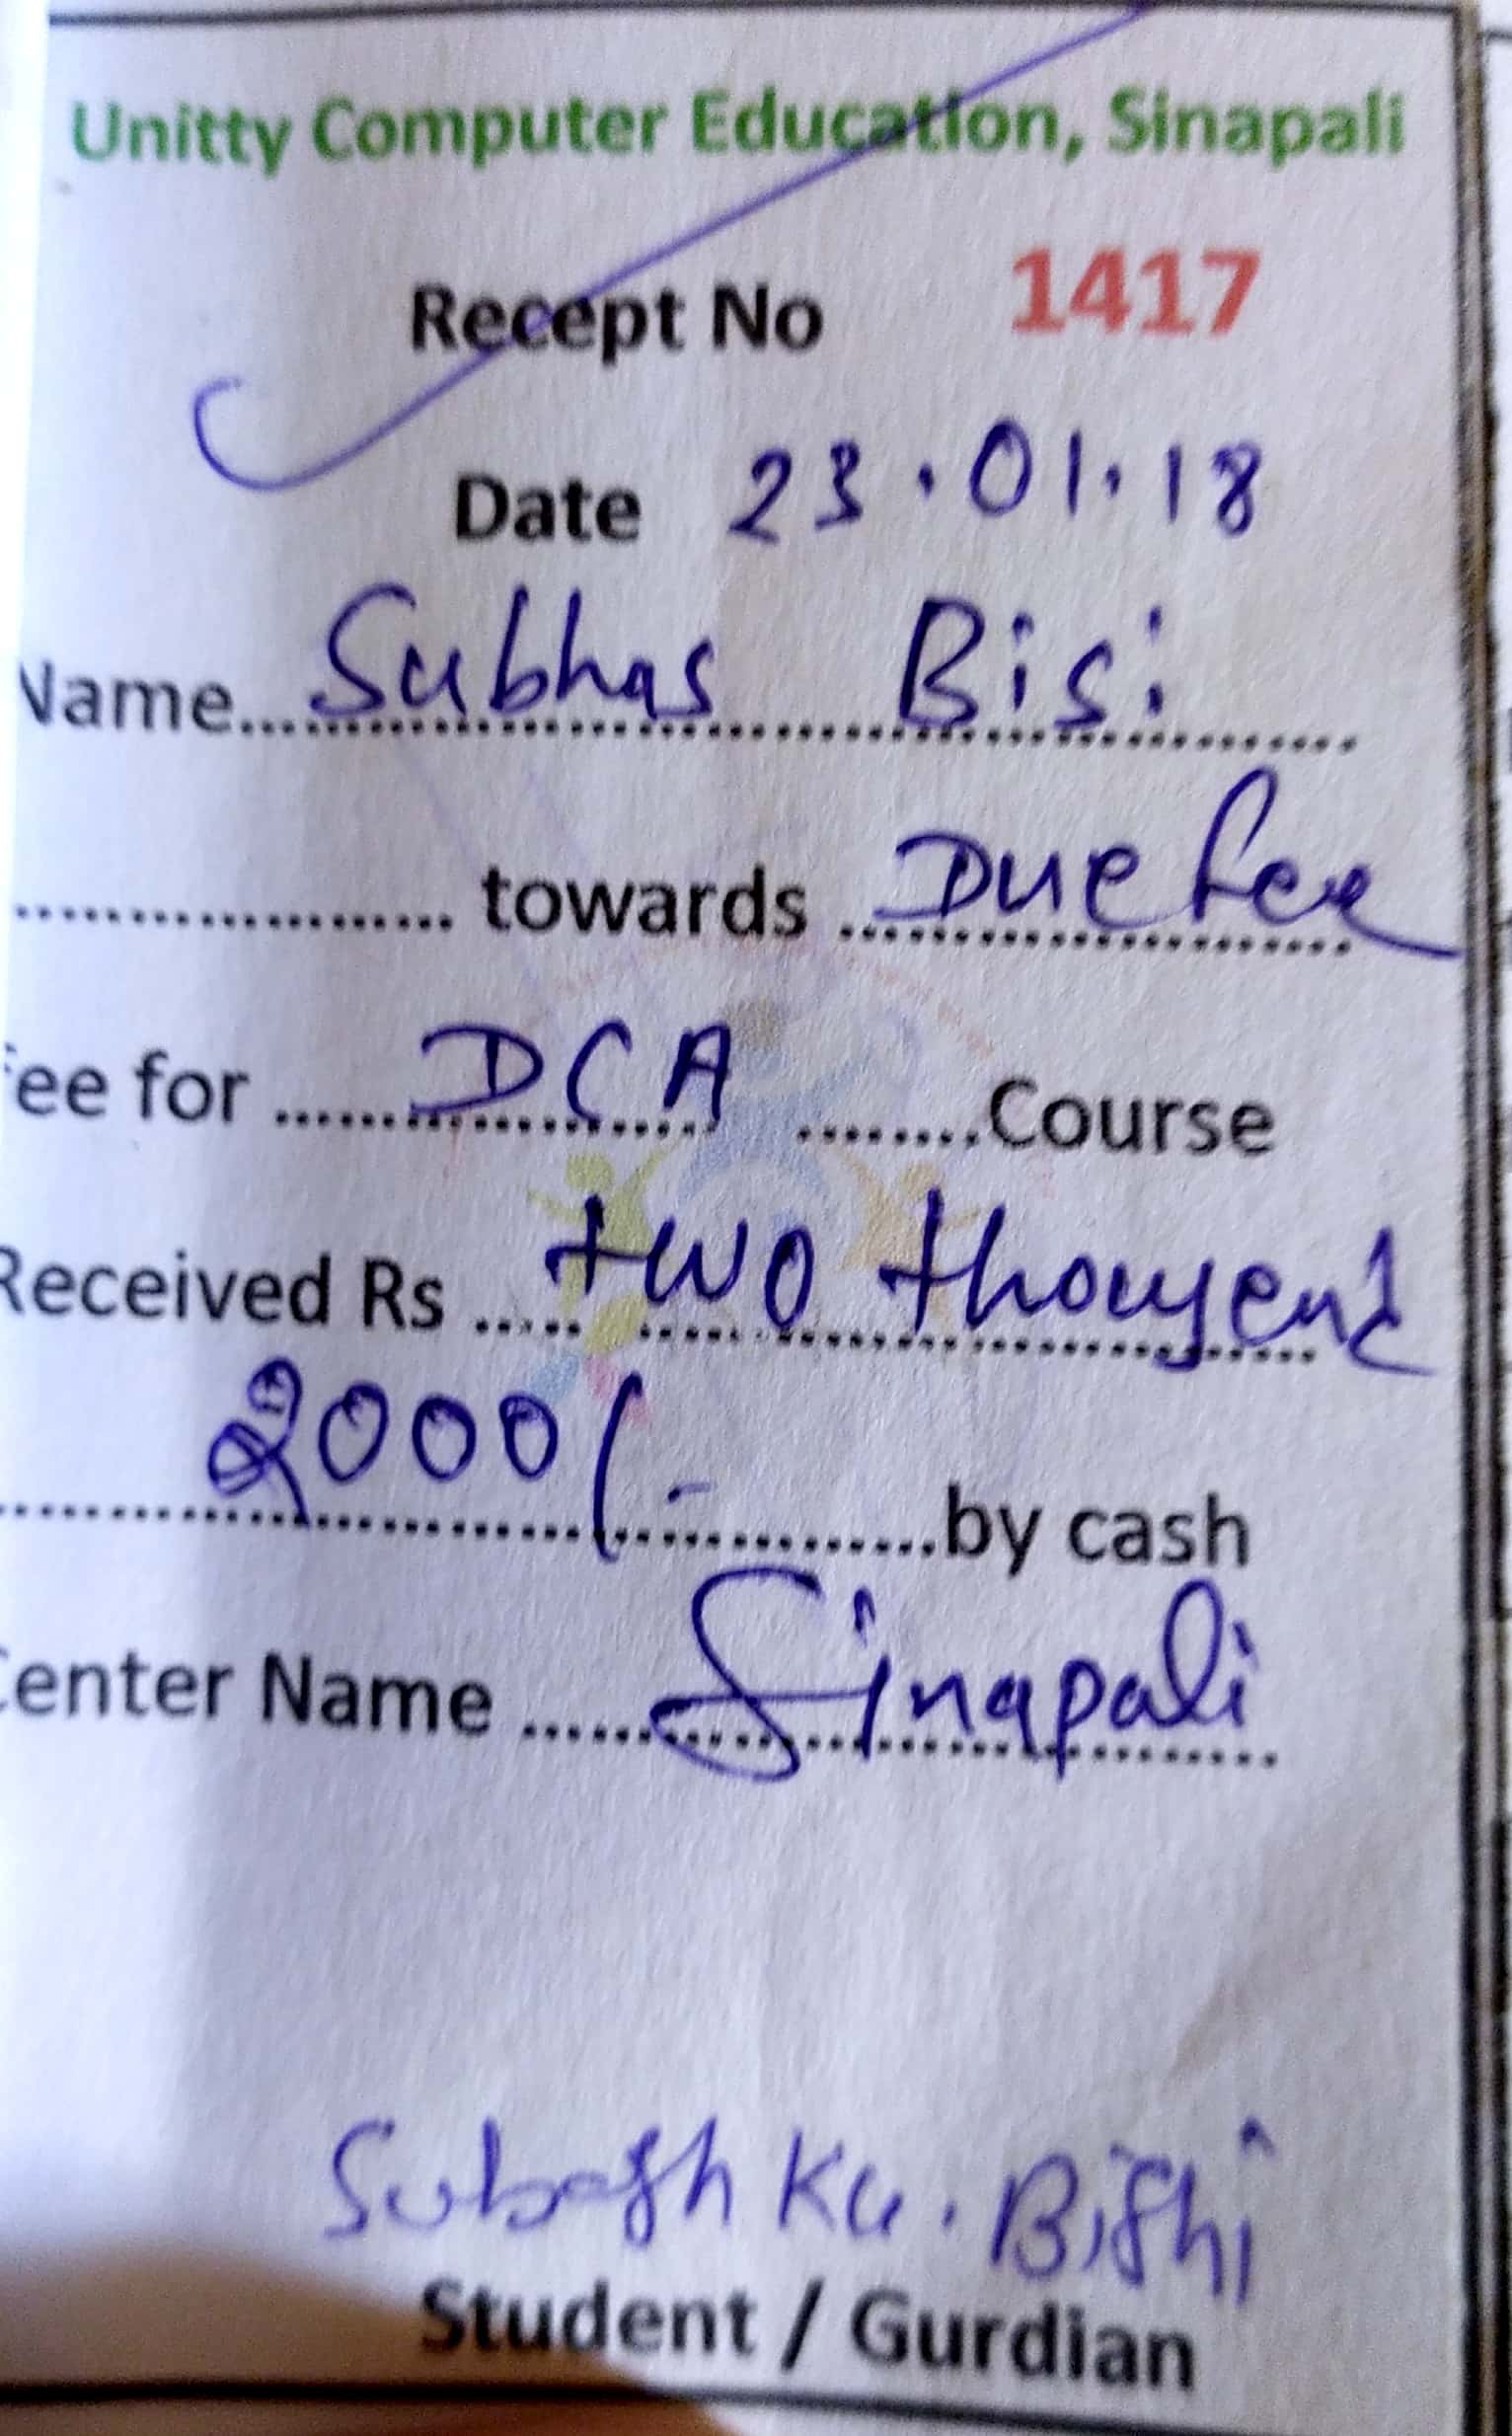 Unitty Computer Education, Sinapali
Recept No 1417
Date 23.01.18
Name........Subhas Bisi........
........ towards ........Due fee
ee for ........DCA ........Course
Received Rs ........two thousend
........2000/-........by cash
enter Name ........Sinapali
Subash Ku. Bishi
Student / Gurdian